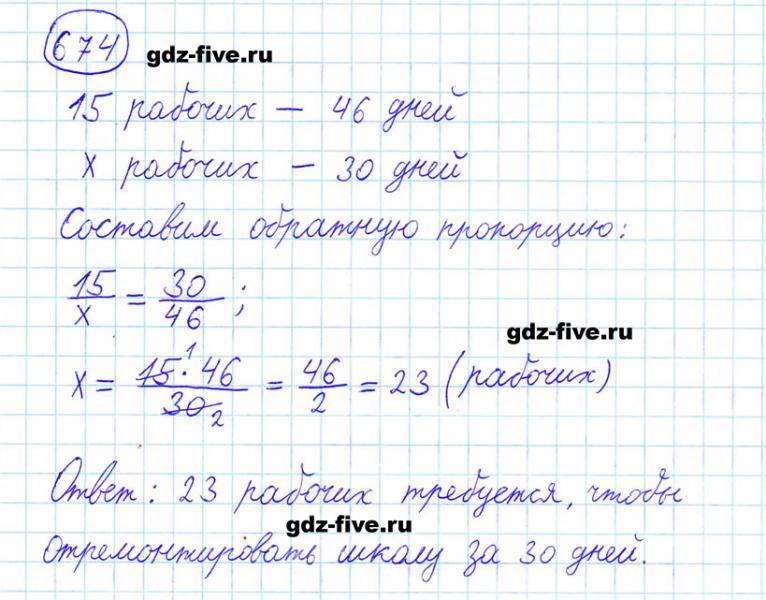 674 gdz-five.ru
15 рабочих — 46 дней
х рабочих — 30 дней
Составим обратную пропорцию:
15/х = 30/46 ;
gdz-five.ru
х = 15¹ · 46 / 30₂ = 46/2 = 23 (рабочих)
Ответ: 23 рабочих требуется, чтобы
gdz-five.ru
отремонтировать школу за 30 дней.